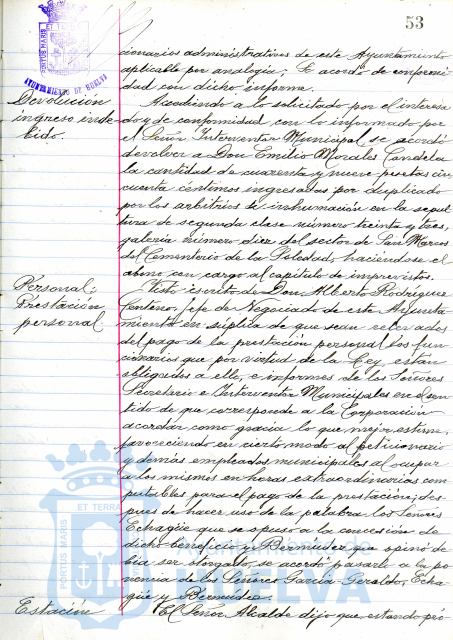 53
PORTUS MARIS ET TERRÆ
AYUNTAMIENTO DE HUELVA
cionarios administrativos de este Ayuntamiento
aplicable por analogía; Se acordó de conformi-
dad con dicho informe.
Devolución
ingreso inde-
bido.
Accediendo a lo solicitado por el interesa-
do y de conformidad con lo informado por
el Señor Interventor Municipal se acordó
devolver a Don Emilio Morales Candela
la cantidad de cuarenta y nueve pesetas cin-
cuenta céntimos ingresadas por duplicado
por los arbitrios de inhumación en la sepul-
tura de segunda clase número treinta y tres,
galeria número diez del sector de San Marcos
del Cementerio de la Soledad, haciéndose el
abono con cargo al capítulo de imprevistos.
Personal:
Prestación
personal.
Visto escrito de Don Alberto Rodríguez
Centeno, Jefe de Negociado de este Ayunta-
miento en súplica de que sean relevados
del pago de la prestación personal los fun-
cionarios que por virtud de la Ley, estan
obligados a ello, e informes de los Señores
Secretario e Interventor Municipales en el sen-
tido de que corresponde a la Corporación
acordar como gracia lo que mejor estime,
favoreciendo en cierto modo al peticionario
y demás empleados municipales al ocupar
a los mismos en horas extraordinarias com-
putables para el pago de la prestación; des-
pues de hacer uso de la palabra los Señores
Echagüe que se opuso a la concesión de
dicho beneficio y Bermudez que opinó de-
bia ser otorgado, se acordó pasarlo a la po-
nencia de los Señores Garcia-Geraldo, Echa-
güe y Bermudez.
Estación
El Señor Alcalde dijo que estando pró-
PORTUS MARIS ET TERRA
Ayuntamiento de
Huelva